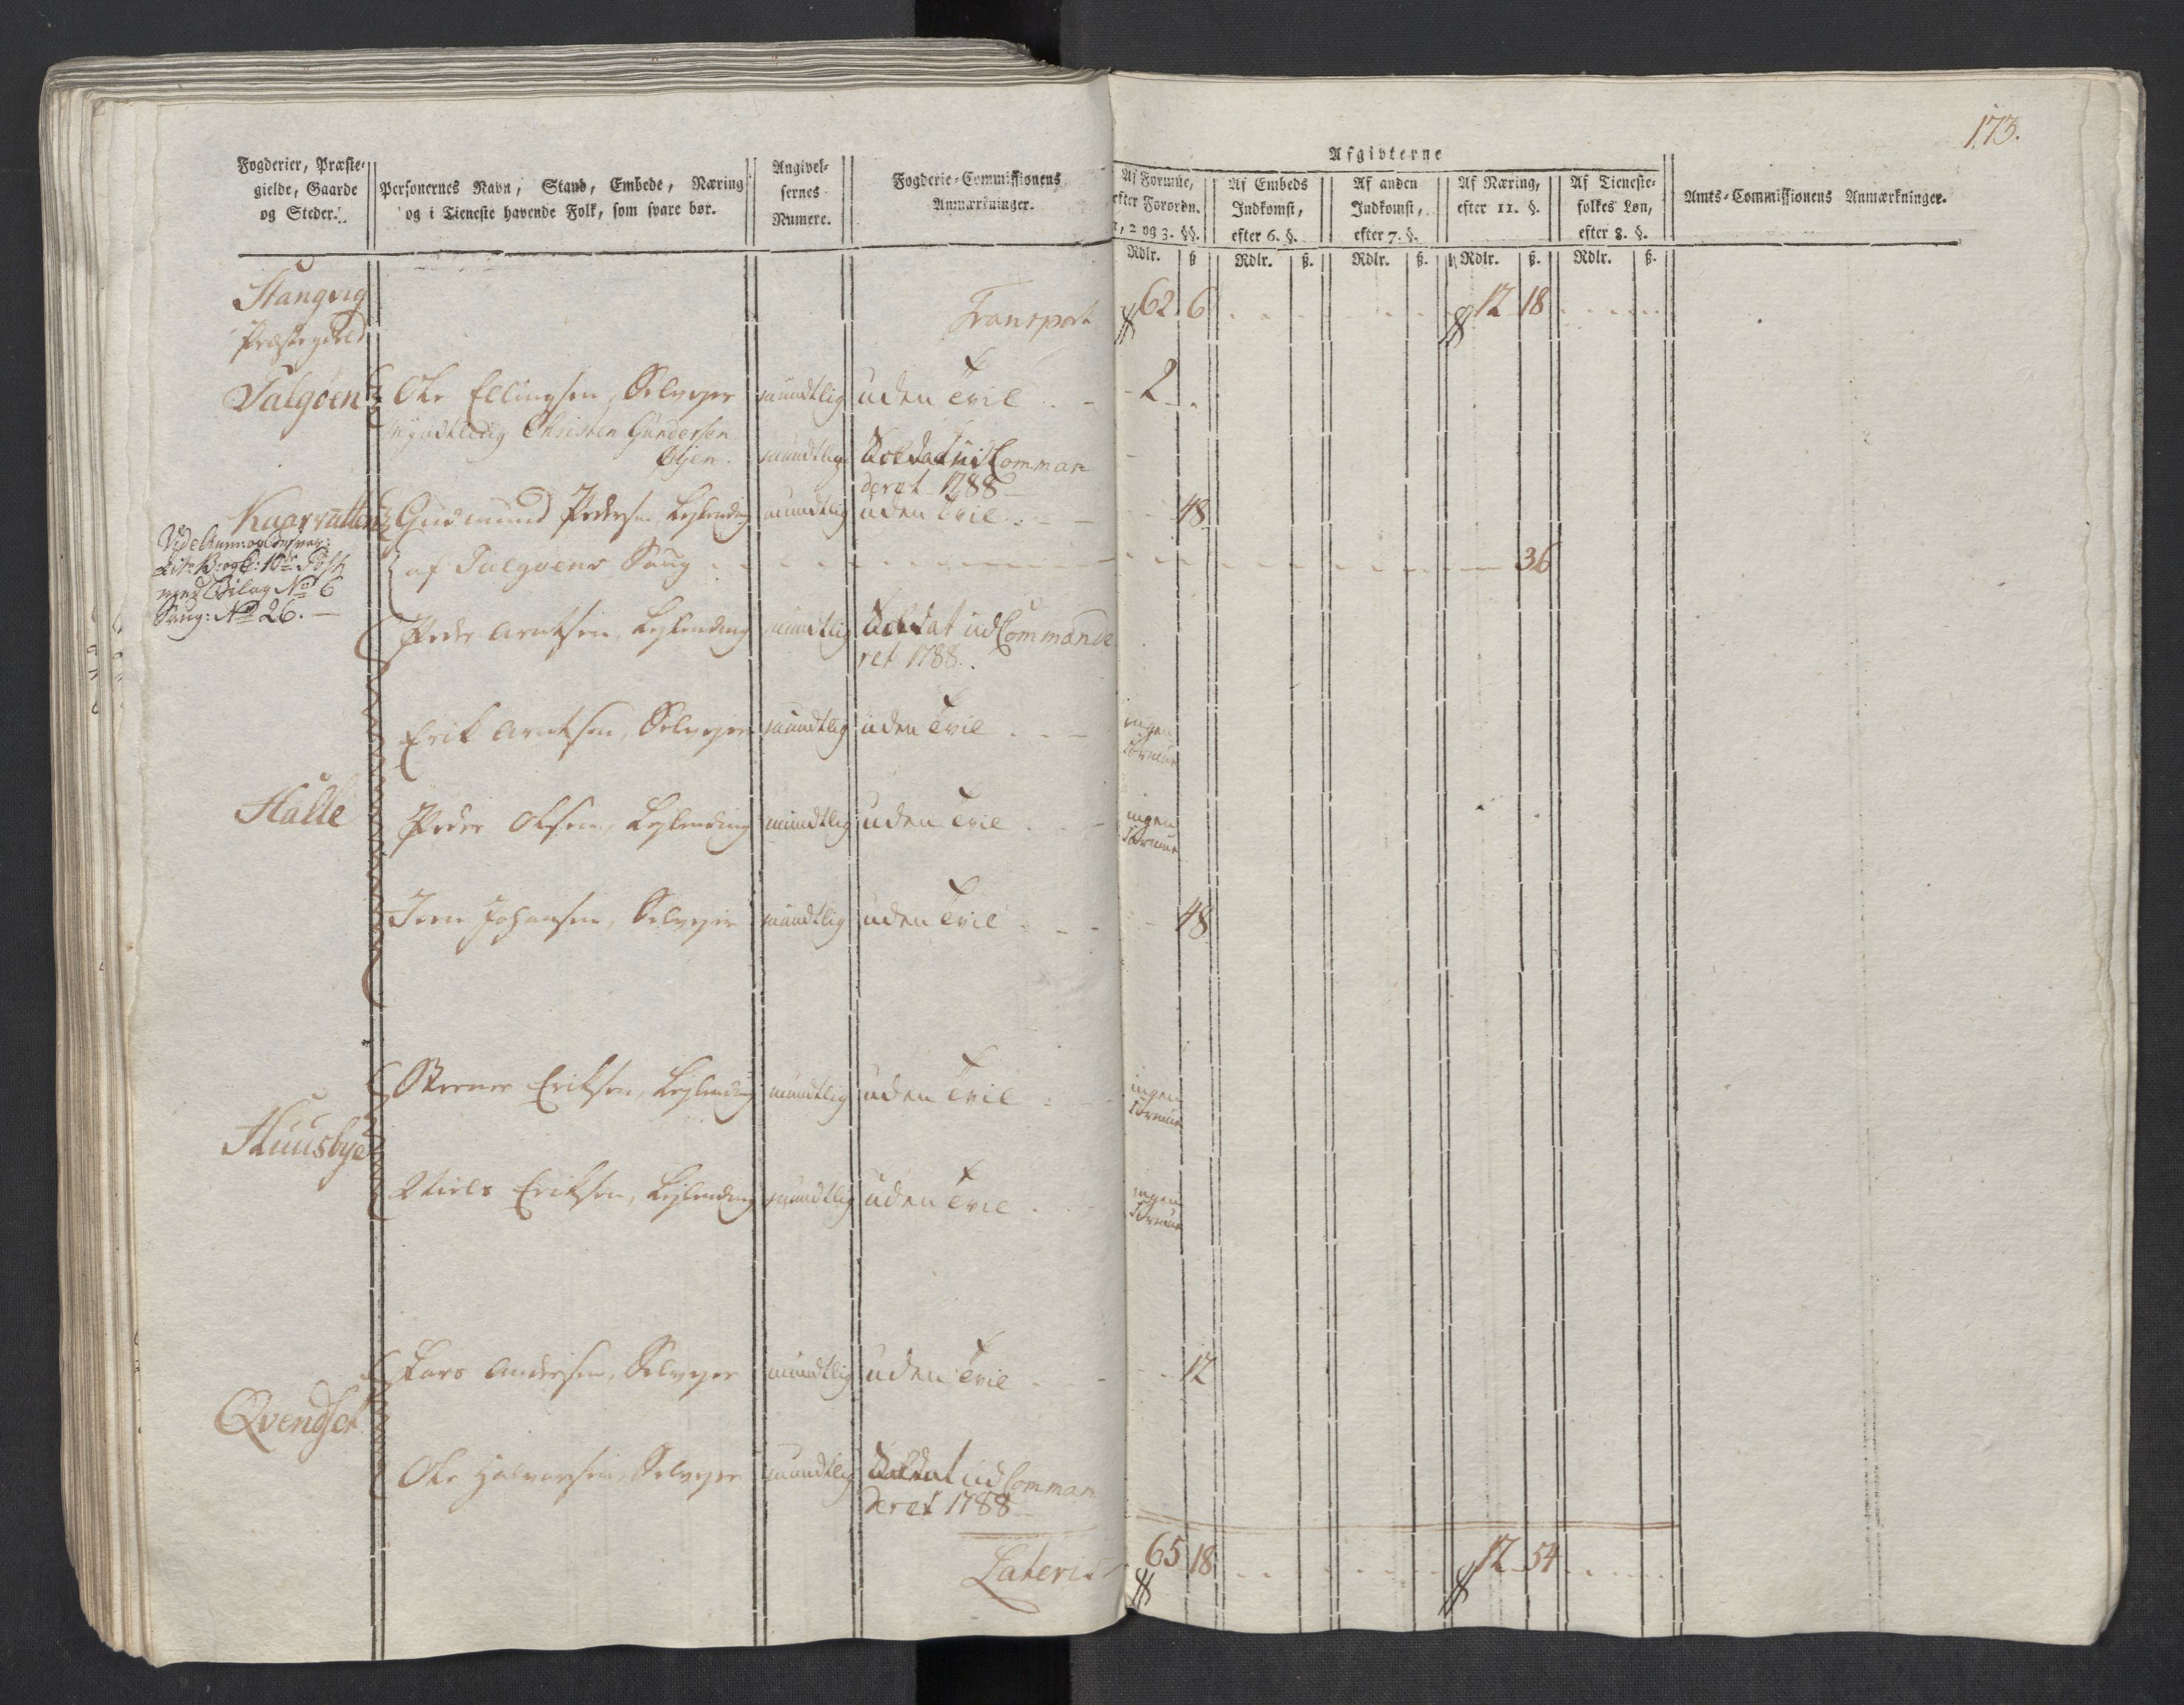 173.
Fogderier, Præste-
gielde, Gaarde
og Steder.
Personernes Navn, Stand, Embede, Næring
og i Tieneste havende Folk, som svare bør.
Angivel-
sernes
Numere.
Fogderie-Commissionens
Anmærkninger.
Afgivterne
Af Formue,
efter Forordn.
1, 2 og 3. §§.
Af Embeds
Indkomst,
efter 6. §.
Af anden
Indkomst,
efter 7. §.
Af Næring,
efter 11. §.
Af Tieneste-
folkes Løn,
efter 8. §.
Amts-Commissionens Anmærkninger.
Rdlr. ß. Rdlr. ß. Rdlr. ß. Rdlr. ß. Rdlr. ß.
Stangvig
Præstegield
Transport 62 6 12 18
Talgøen Ole Ellingsen, Selveyer mundtlig uden Tvil 2
Christen Gundersen
Øyen. mundtlig Soldat udComman
deret 1788
Gudmund Pedersen Leylending mundtlig uden Tvil 48
af Talgøens Saug 36
med Bilag No 6
Saug: No 26.
Peder Arntsen, Leylending mundtlig Soldat udCommande
ret 1788.
Erik Arntsen, Selveyer mundtlig uden Tvil ingen
Formue
Halle Peder Olsen, Leylending mundtlig uden Tvil ingen
Formue
Iver Johansen, Selveyer mundtlig uden Tvil 48
Eriksen, Leylending mundtlig uden Tvil ingen
Formue
Huusbye
Niels Eriksen, Leylending mundtlig uden Tvil ingen
Formue
Lars Andersen, Selveyer mundtlig uden Tvil 12
Qvendset
Ole Halvorsen, Selveyer mundtlig Soldat udComman
deret 1788
Lateris 65 18 12 54